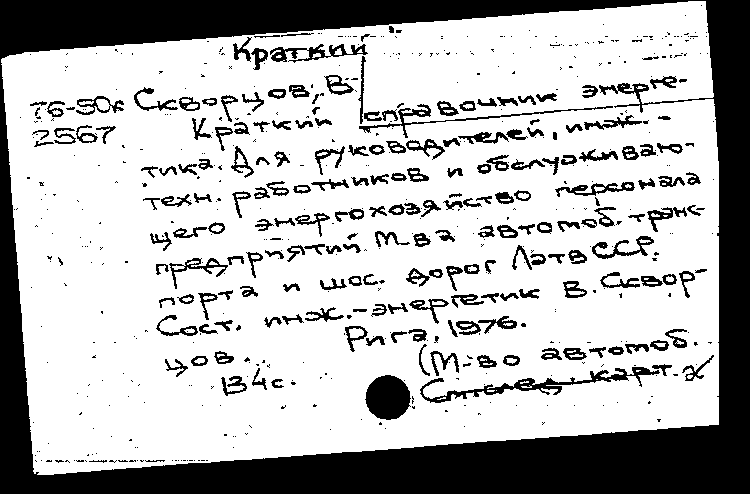 Краткий
76-50к Скворцов, В.
2567 Краткий справочник энерге-
тика. Для руководителей, инж.-
техн. работников и обслуживаю-
щего энергохозяйство персонала
предприятий М-ва автомоб. транс-
порта и шос. дорог ЛатвССР.
Сост. инж.-энергетик В. Сквор-
цов. Рига, 1976.
134с. (М-во автомоб.
См. след. карт.